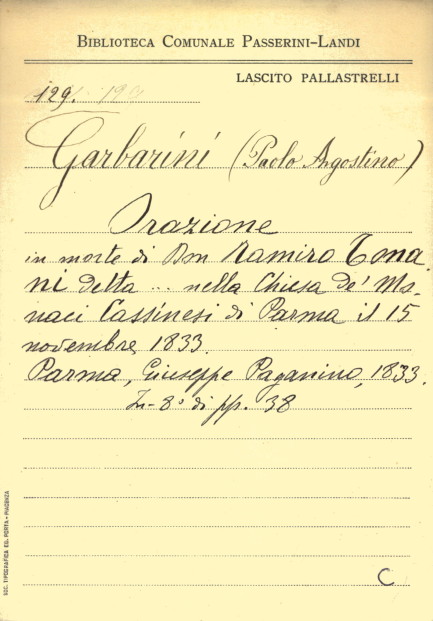 BIBLIOTECA COMUNALE PASSERINI-LANDI
LASCITO PALLASTRELLI
129. 129
Garbarini (Paolo Agostino)
Orazione
in morte di Don Ramiro Tona
ni detta ... nella Chiesa de' Mo-
naci Cassinesi di Parma il 15
novembre 1833.
Parma, Giuseppe Paganino, 1833.
In-8° di pp. 38
SOC. TIPOGRAFICA ED. PORTA - PIACENZA
C